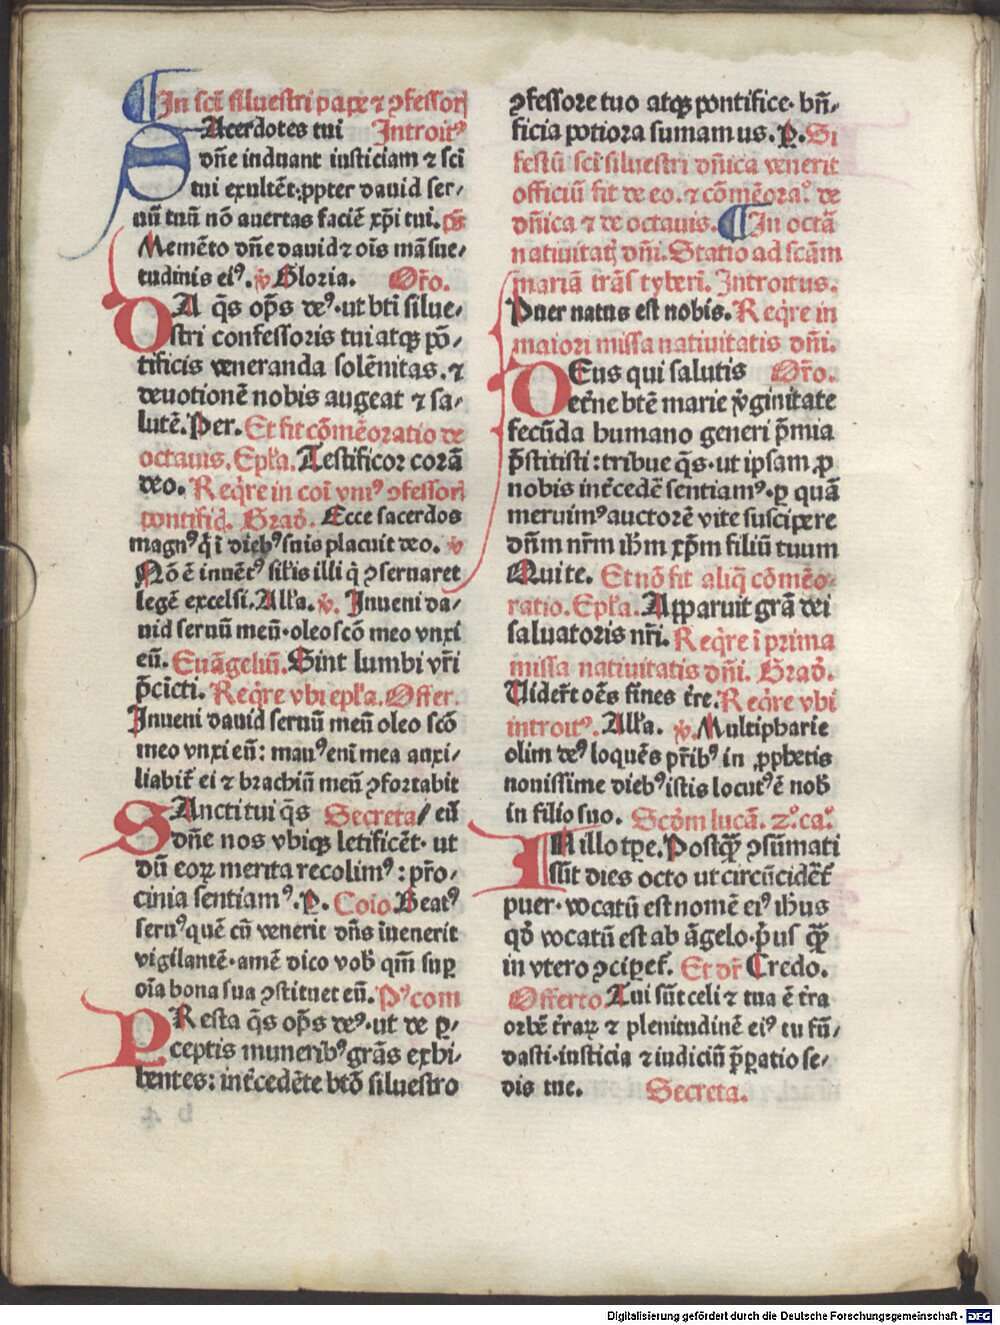 ¶In scī siluestri pape ⁊ ꝯfessoris
SAcerdotes tui Introitꝰ
dn̄e induant iusticiam ⁊ scī
tui exultēt·ꝓpter dauid ser⸗
uū tuū nō auertas faciē xp̄i tui. ps̄
Memēto dn̄e dauid ⁊ oīs māsue⸗
tudinis eiꝰ. ℣ Gloria. Or̄o.
DA q̄s op̄s deꝰ·ut bt̄i silue⸗
stri confessoris tui atqꝫ pō⸗
tificis veneranda solēnitas. ⁊
deuotionē nobis augeat ⁊ sa⸗
lutē. Per. Et fit cōmēoratio de
octauis. Ep̄la. Testificor corā
deo. Reqͥre in coī vniꝰ ꝯfessoris
pontificͣ. Gradͣ. Ecce sacerdos
magnꝰ qͥ ī diebꝰ suis placuit deo. ℣
Nō ē inuētꝰ sil̄is illi qͥ ꝯseruaret
legē excelsi. Al̄l̄a. ℣. Inueni da⸗
uid seruū meū·oleo scō meo vnxi
eū. Euāgeliū. Sint lumbi vr̄i
p̄cīcti. Reqͥre vbi ep̄la. Offer.
Inueni dauid seruū meū oleo scō
meo vnxi eū: manꝰ enī mea auxi⸗
liabit̄ ei ⁊ brachiū meū ꝯfortabit
SAncti tui q̄s Secreta / eū
dn̄e nos vbiqꝫ letificēt· ut
dū eoꝝ merita recolimꝰ: pr̄o⸗
cinia sentiamꝰ. P. Coīo. Beatꝰ
seruꝰ quē cū venerit dn̄s īuenerit
vigilantē·amē dico vob̄ qm̄ suꝑ
oīa bona sua ꝯstituet eū. Pꝰcom
PResta q̄s op̄s deꝰ·ut de ꝑ⸗
ceptis muneribꝰ grās exhi⸗
bentes: int̄cedēte bt̄o siluestro
ꝯfessore tuo atqꝫ pontifice· bn̄⸗
ficia potiora sumamus. P. Si
festū scī siluestri dn̄ica venerit
officiū fit de eo. ⁊ cōmēoraͦ. de
dn̄ica ⁊ de octauis. ¶In octā
natiuitatꝭ dn̄i. Statio ad scām
mariā trās tyberī. Introitus.
Puer natus est nobis. Reqͥre in
maiori missa natiuitatis dn̄i.
DEus qui salutis Or̄o.
et̄ne bt̄ē marie v̄ginitate
fecūda humano generi p̄mia
p̄stitisti: tribue q̄s·ut ipsam ꝓ
nobis int̄cedē sentiamꝰ·ꝑ quā
meruimꝰ auctorē vite suscipere
dn̄m nr̄m ih̄m xp̄m filiū tuum
Qui te. Et nō fit aliqͣ cōmēo⸗
ratio. Ep̄la. Apparuit grā dei
saluatoris nr̄i. Reqͥre ī prima
missa natiuitatis dn̄i. Gradͣ.
Uider̄t oēs fines t̄re. Reqͥre vbi
introitꝰ. Al̄l̄a. ℣. Multipharie
olim deꝰ loquēs pr̄ibꝰ in ꝓphetis
nouissime diebꝰ istis locutꝰ ē nob̄
in filio suo. Scd̄m lucā. 2ͦ. caͦ.
IN illo tp̄e. Postqͣ̄ ꝯsūmati
sūt dies octo ut circūcidēt̄
puer·vocatū est nomē eiꝰ ih̄us
qd̄ vocatū est ab āgelo·pͥus qͣ̄
in vtero ꝯcipet̄. Et dr̄ Credo.
Offerto. Tui sūt celi ⁊ tua ē t̄ra
orbē t̄raꝝ ⁊ plenitudinē eiꝰ tu fū⸗
dasti·iusticia ⁊ iudiciū p̄ꝑatio se⸗
dis tue. Secreta.
Digitalisierung gefördert durch die Deutsche Forschungsgemeinschaft - DFG